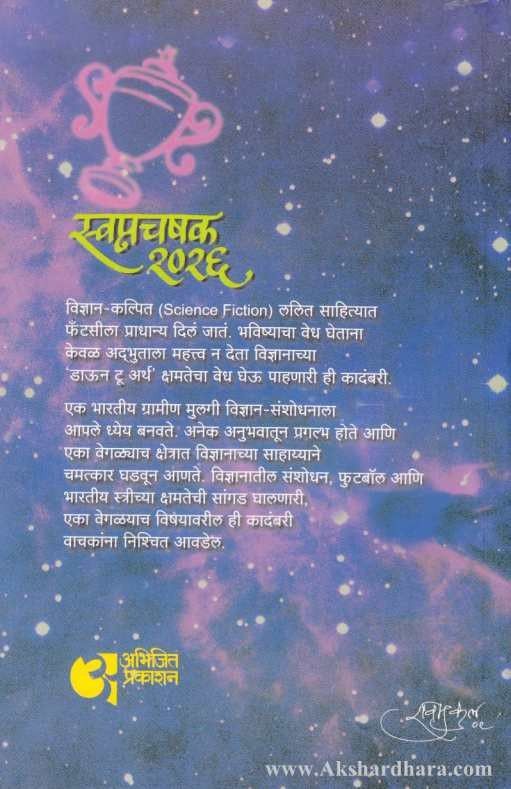 स्वप्नचषक
२०२६
विज्ञान-कल्पित (Science Fiction) ललित साहित्यात
फँटसीला प्राधान्य दिलं जातं. भविष्याचा वेध घेताना
केवळ अद्‌भुताला महत्त्व न देता विज्ञानाच्या
'डाऊन टू अर्थ' क्षमतेचा वेध घेऊ पाहणारी ही कादंबरी.
एक भारतीय ग्रामीण मुलगी विज्ञान-संशोधनाला
आपले ध्येय बनवते. अनेक अनुभवातून प्रगल्भ होते आणि
एका वेगळ्याच क्षेत्रात विज्ञानाच्या साहाय्याने
चमत्कार घडवून आणते. विज्ञानातील संशोधन, फुटबॉल आणि
भारतीय स्त्रीच्या क्षमतेची सांगड घालणारी,
एका वेगळयाच विषयावरील ही कादंबरी
वाचकांना निश्चित आवडेल.
अभिजित
प्रकाशन
www.Akshardhara.com